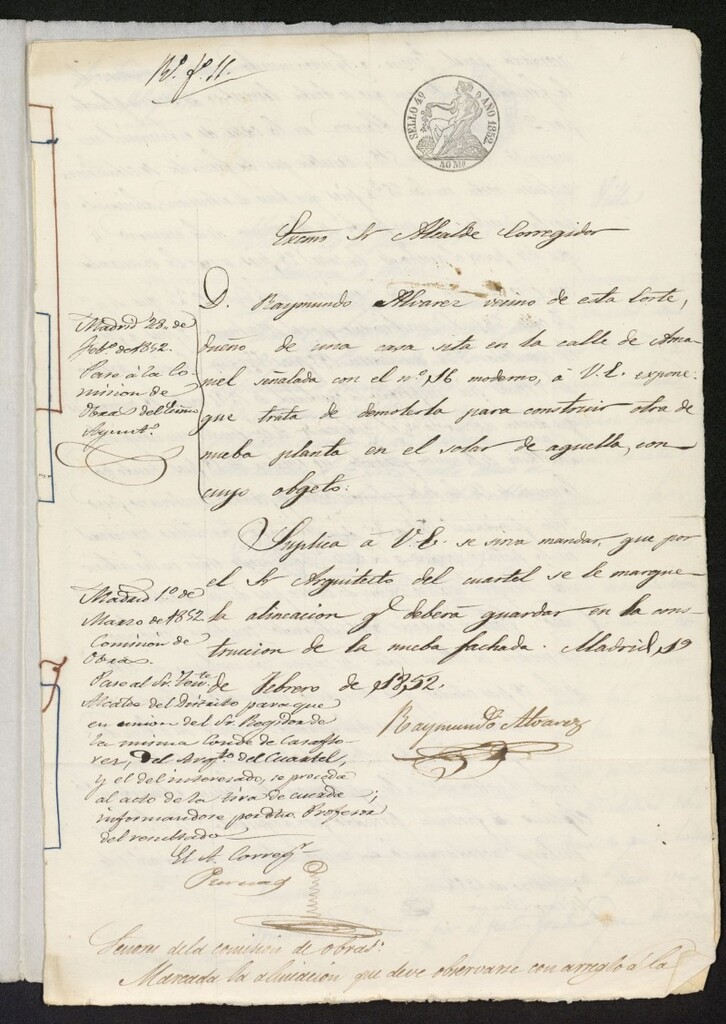 Rº. fº. 11.
SELLO 4º AÑO 1852.
40 Mˢ
Excmo Sr Alcalde Corregidor
D. Raymundo Alvarez vecino de esta Corte,
dueño de una casa sita en la calle de Ama-
niel señalada con el nº 16 moderno, á V.E. expone
que trata de demolerla para construir otra de
nueba planta en el solar de aquella, con
cuyo objeto:
Suplica á V.E. se sirva mandar, que por
el Sr Arquitecto del cuartel se le marque
la alineacion q.e deberá guardar en la cons-
truccion de la nueba fachada. Madrid, 19
de Febrero de 1852.
Raymundo Alvarez
Madrid 28 de
Febº de 1852.
Pase á la Co-
mision de
Obras del Excmo
Ayunt.º
Madrid 1.º de
Marzo de 1852
Comision de
Obras
Pase al Sr. Ten.te
Alcalde del Distrito para que
en union del Sr Regidor de
la misma Conde de Casaflo-
res, del Arq.to del Cuartel,
y el del interesado, se proceda
al acto de la tira de cuerda;
informandose por dho Profesor
del resultado
El A. Correg.r
Señores de la comision de obras:
Marcada la alineacion que deve observarse con arreglo á la